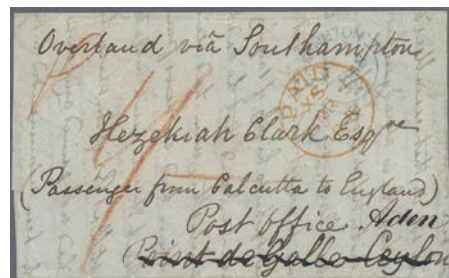 Overland viâ Southampton
PAID
Hezekiah Clark Esqre
(Passenger from Calcutta to England)
Post office Aden
Point de Galle Ceylon